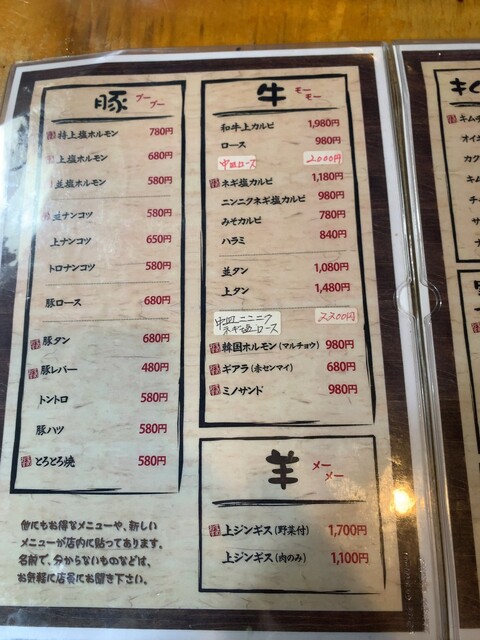 豚 ブー
ブー
特上塩ホルモン 780円
上塩ホルモン 680円
並塩ホルモン 580円
並ナンコツ 580円
上ナンコツ 650円
トロナンコツ 580円
豚ロース 680円
豚タン 680円
豚レバー 480円
トントロ 580円
豚ハツ 580円
とろとろ焼 580円
他にもお得なメニューや、新しい
メニューが店内に貼ってあります。
名前で、分からないものなどは、
お気軽に店長にお聞き下さい。
牛 モー
モー
和牛上カルビ 1,980円
ロース 980円
中皿ロース 2000円
ネギ塩カルビ 1,180円
ニンニクネギ塩カルビ 980円
みそカルビ 780円
ハラミ 840円
並タン 1,080円
上タン 1,480円
中皿ニンニク
ネギ塩ロース 2200円
韓国ホルモン(マルチョウ) 980円
ギアラ(赤センマイ) 680円
ミノサンド 980円
羊 メー
メー
上ジンギス(野菜付) 1,700円
上ジンギス(肉のみ) 1,100円
キム
オイ
カク
キム
チ
サ